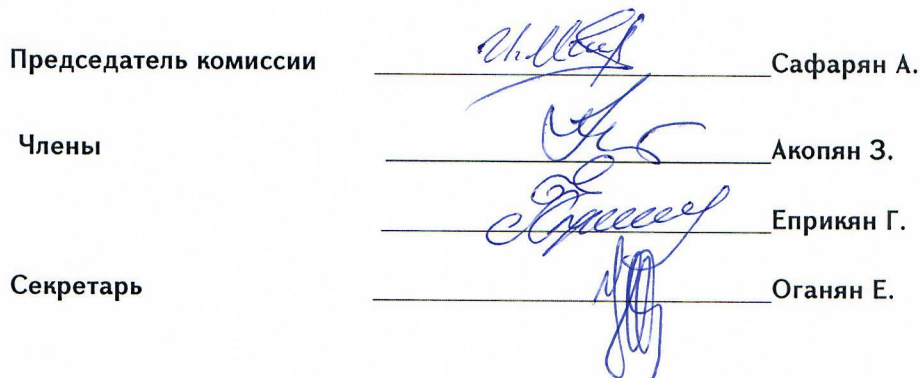 Председатель комиссии Сафарян А.
Члены Акопян З.
Еприкян Г.
Секретарь Оганян Е.